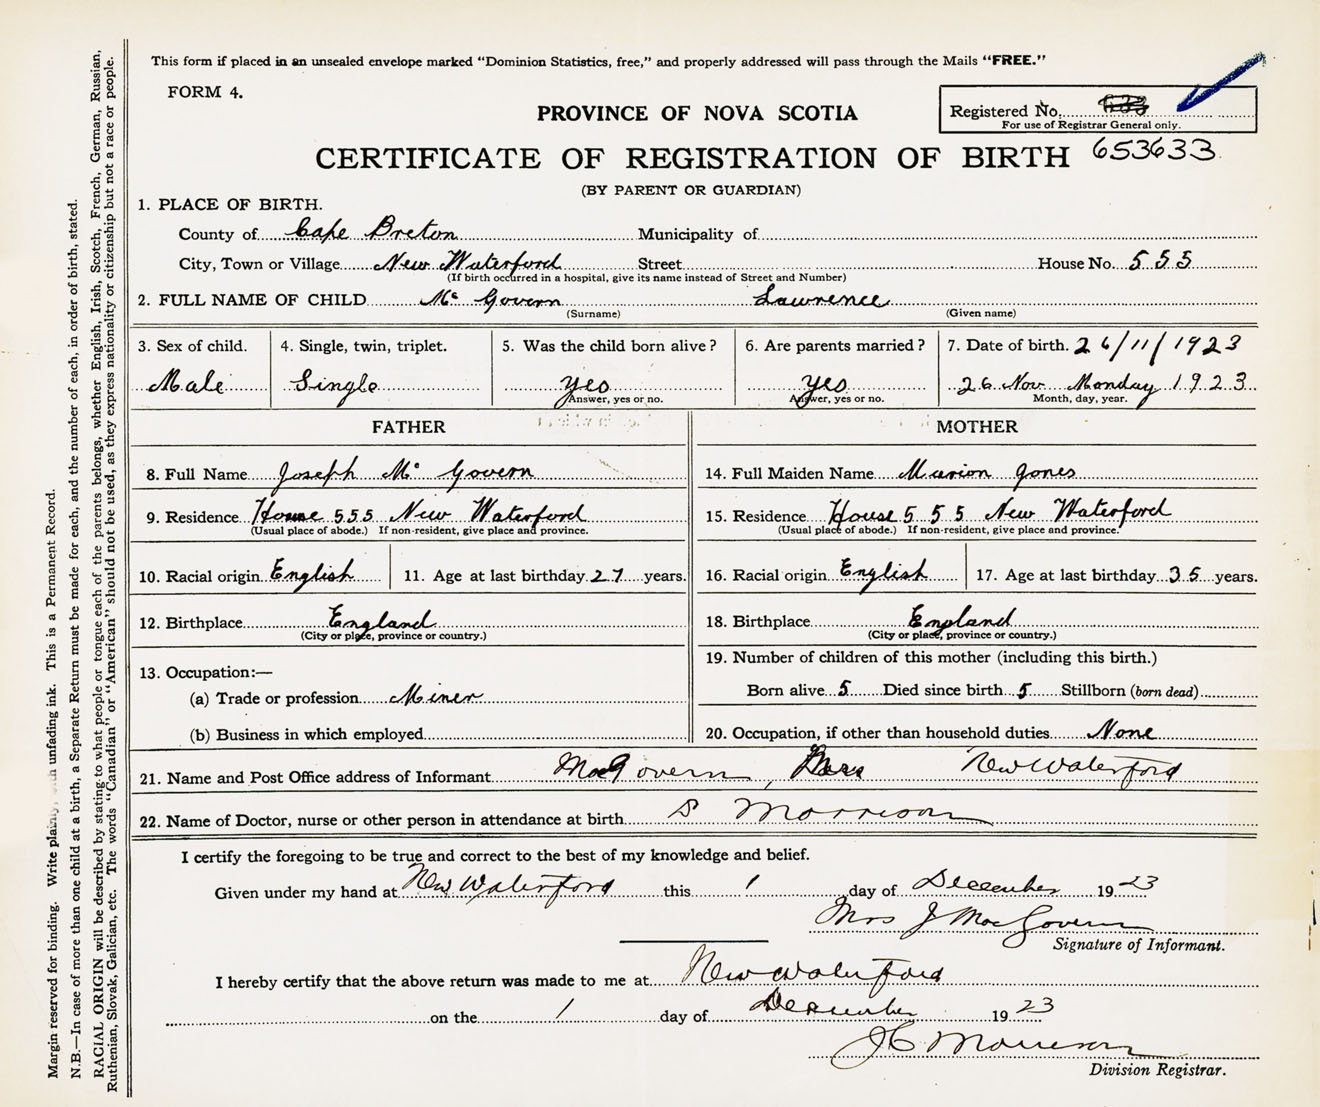 This form if placed in an unsealed envelope marked "Dominion Statistics, free," and properly addressed will pass through the Mails "FREE."
FORM 4.
PROVINCE OF NOVA SCOTIA
Registered No.
For use of Registrar General only.
653633
CERTIFICATE OF REGISTRATION OF BIRTH
(BY PARENT OR GUARDIAN)
1. PLACE OF BIRTH.
County of Cape Breton Municipality of
City, Town or Village New Waterford Street House No. 555
(If birth occurred in a hospital, give its name instead of Street and Number)
2. FULL NAME OF CHILD Mc Govern Lawrence
(Surname) (Given name)
3. Sex of child. 4. Single, twin, triplet. 5. Was the child born alive? 6. Are parents married? 7. Date of birth. 26/11/1923
Male Single yes yes 26 Nov Monday 1923
Answer, yes or no. Answer, yes or no. Month, day, year.
FATHER MOTHER
8. Full Name Joseph Mc Govern 14. Full Maiden Name Marion Jones
9. Residence House 555 New Waterford 15. Residence House 555 New Waterford
(Usual place of abode.) If non-resident, give place and province. (Usual place of abode.) If non-resident, give place and province.
10. Racial origin English 11. Age at last birthday 27 years. 16. Racial origin English 17. Age at last birthday 35 years.
12. Birthplace England 18. Birthplace England
(City or place, province or country.) (City or place, province or country.)
13. Occupation:— 19. Number of children of this mother (including this birth.)
(a) Trade or profession Miner Born alive 5 Died since birth 5 Stillborn (born dead)
(b) Business in which employed 20. Occupation, if other than household duties None
21. Name and Post Office address of Informant MacGovern, New Waterford
22. Name of Doctor, nurse or other person in attendance at birth S Morrison
I certify the foregoing to be true and correct to the best of my knowledge and belief.
Given under my hand at New Waterford this 1 day of December 1923
Mrs J MacGovern
Signature of Informant.
I hereby certify that the above return was made to me at New Waterford
on the 1 day of December 1923
J C Morrison
Division Registrar.
Margin reserved for binding. Write plainly, with unfading ink. This is a Permanent Record.
N.B.—In case of more than one child at a birth, a Separate Return must be made for each, and the number of each, in order of birth, stated.
RACIAL ORIGIN will be described by stating to what people or tongue each of the parents belongs, whether English, Irish, Scotch, French, German, Russian,
Ruthenian, Slovak, Galician, etc. The words "Canadian" or "American" should not be used, as they express nationality or citizenship but not a race or people.